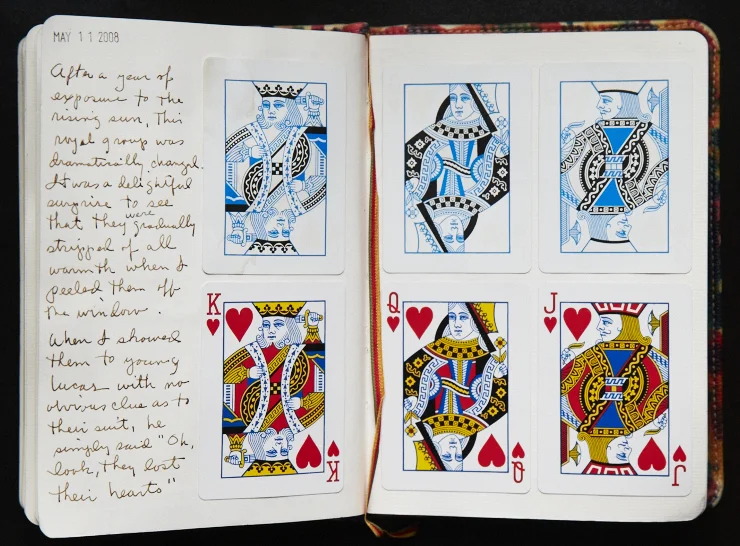 MAY 11 2008
After a year of
exposure to the
rising sun, this
royal group was
dramatically changed.
It was a delightful
surprise to see
that they were gradually
stripped of all
warmth when I
peeled them off
the window.
When I showed
them to young
Lucas with no
obvious clue as to
their suit, he
simply said "Oh,
look, they lost
their hearts"
K
K
Q
Q
J
J